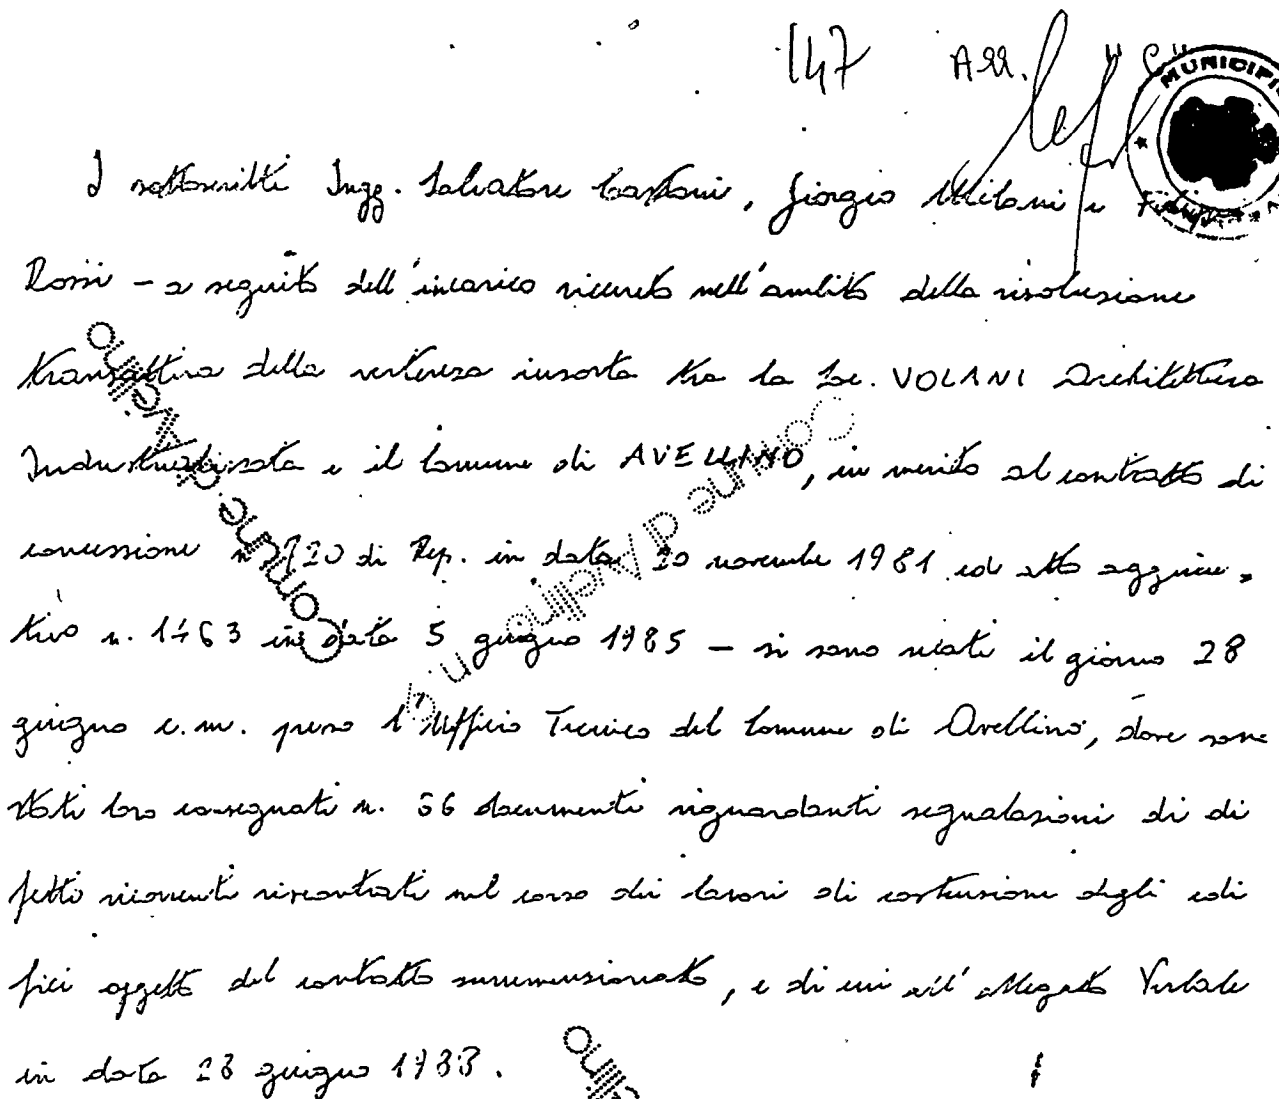 147 All.
MUNICIPIO
I sottoscritti Ingg. Salvatore Cantoni, Giorgio Milani e
Rossi - a seguito dell'incarico ricevuto nell'ambito della risoluzione
transattiva della vertenza insorta tra la Soc. VOLANI Architettura
Industrializzata e il Comune di AVELLINO, in merito al contratto di
concessione di Rep. in data 20 novembre 1981 ed atto aggiun=
tivo n. 1463 in data 5 giugno 1985 - si sono recati il giorno 28
giugno c.m. presso l'Ufficio Tecnico del Comune di Avellino, dove sono
stati loro consegnati n. 56 documenti riguardanti segnalazioni di di
fetti ricorrenti riscontrati nel corso dei lavori di costruzione degli edi
fici oggetto del contratto summenzionato, e di cui all'allegato Verbale
in data 28 giugno 1988.
Comune di Avellino
Comune di Avellino